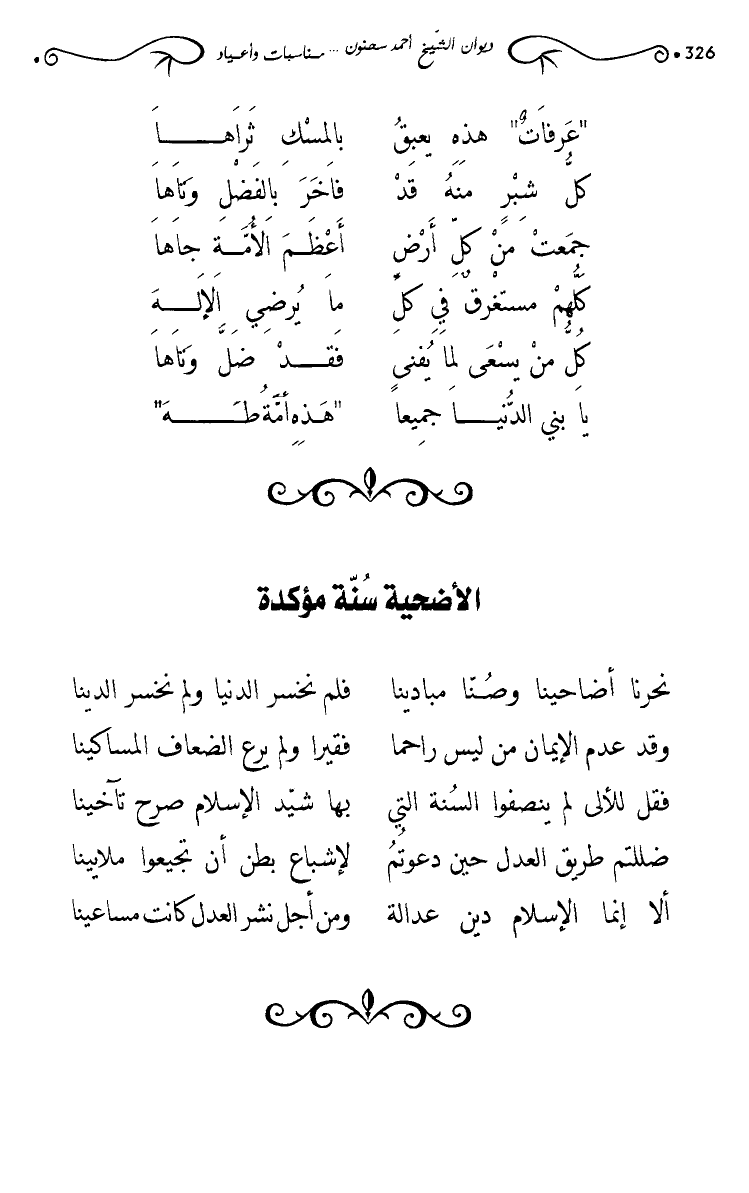 326 ديوان الشيخ أحمد سحنون ... مناسبات وأعياد
"عَرفاتٌ" هذهِ يعبقُ بالمسْكِ ثَراهــــا
كلُّ شبْرٍ منهُ قَدْ فاخَرَ بالفَضْلِ وتَاهَا
جمَعتْ منْ كلِّ أرْضٍ أَعْظــمَ الأُمّــةِ جاهَا
كلُّهمْ مستغْرقٌ في كلِّ ما يُرضِي الإلــهَ
كلُّ منْ يسْعَى لمَا يُفنى فَقــدْ ضلَّ وتَاهَا
يا بني الدُّنيــا جميعاً "هَــذهِ أمَّةُ طــهَ"
الأضحية سُنّة مؤكدة
نحرنا أضاحينا وصُنّا مبادينا فلم نخسر الدنيا ولم نخسر الدينا
وقد عدم الإيمان من ليس راحما فقيرا ولم يرع الضعاف المساكينا
فقل للألى لم ينصفوا السُنة التي بها شيّد الإسلام صرح تآخينا
ضللتم طريق العدل حين دعوتُمُ لإشباع بطن أن تجيعوا ملايينا
ألا إنما الإسلام دين عدالة ومن أجل نشر العدل كانت مساعينا